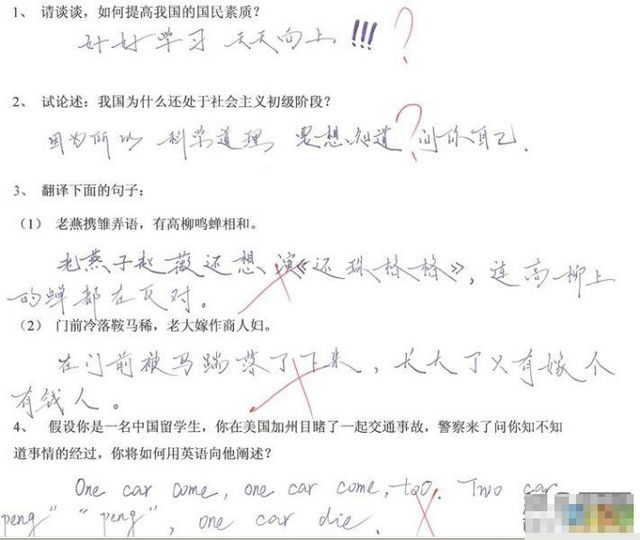 1、 请谈谈，如何提高我国的国民素质？
好好学习 天天向上 !!! ?
2、 试论述：我国为什么还处于社会主义初级阶段？
因为所以 科学道理 要想知道 ? 问你自己.
3、 翻译下面的句子：
（1） 老燕携雏弄语，有高柳鸣蝉相和。
老燕子赵薇还想演《还珠格格》，连高柳上
的蝉都在反对。
（2） 门前冷落鞍马稀，老大嫁作商人妇。
在门前被马踹落了下来，长大了又有嫁个
有钱人。
4、 假设你是一名中国留学生，你在美国加州目睹了一起交通事故，警察来了问你知不知
道事情的经过，你将如何用英语向他阐述？
One car come, one car come, too. Two car
peng" "peng", one car die.